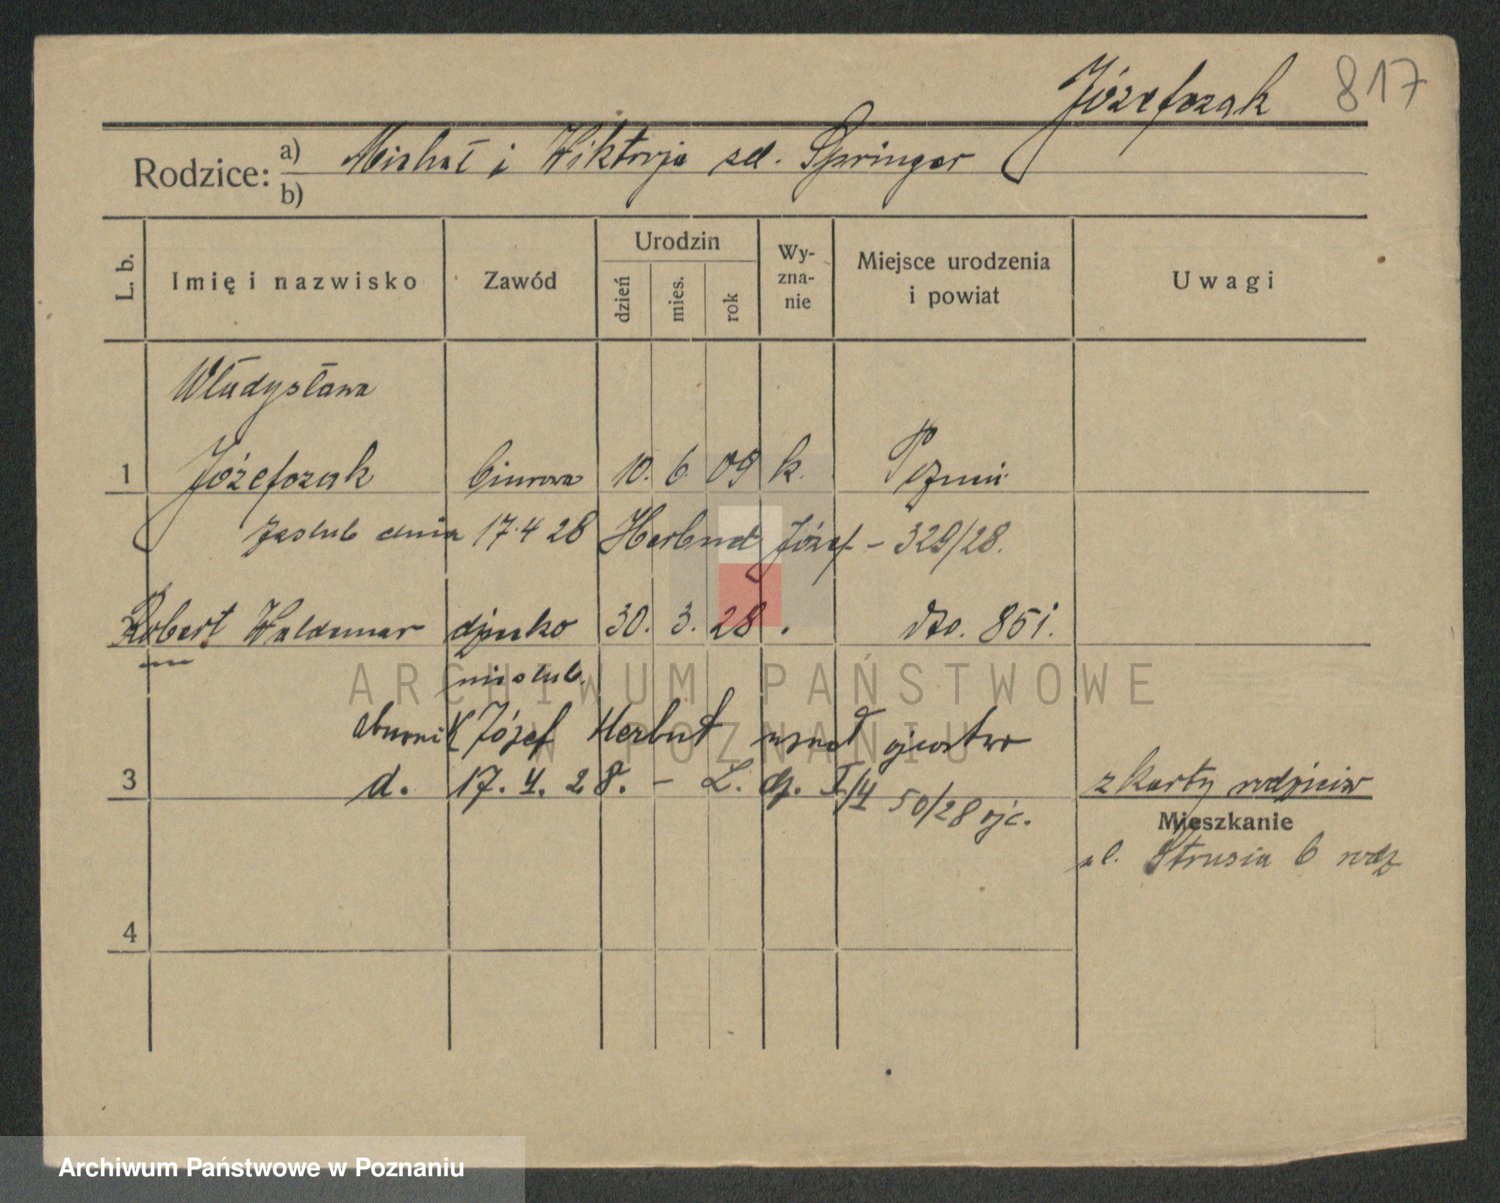 Józefczak 817
Rodzice: a) Michał i Wiktorja zd. Springer
b)
L. b. Imię i nazwisko Zawód Urodzin dzień mies. rok Wyznanie Miejsce urodzenia i powiat Uwagi
Władysława
1 Józefczak biurowa 10. 6. 09 k. Poznań
zaślub dnia 17.4 28 Herbud Józef – 329/28.
Robert Waldemar dziecko 30. 3. 28 . dto. 851.
nieślub.
Józef Herbut uznał ojcostwo
3 d. 17. 4. 28. – L. dz. 50/28 ojc.
z karty rodziców
Mieszkanie
ul. Strusia 6 rodz
4
ARCHIWUM PAŃSTWOWE
W POZNANIU
Archiwum Państwowe w Poznaniu